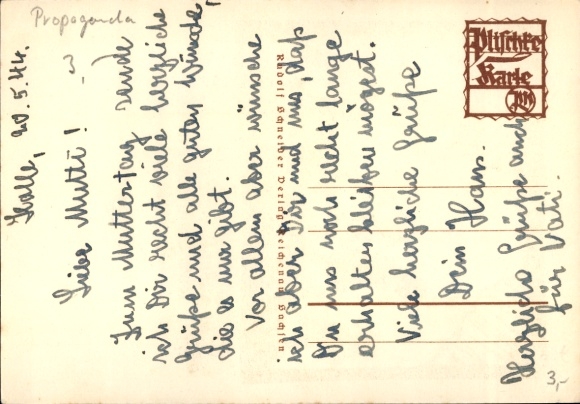 Propaganda
Plischke
Karte
Halle, 20.5.44.
Liebe Mutti!
Zum Muttertag sende
ich Dir recht viele herzliche
Grüße und alle guten Wünsche,
die es nur gibt.
Vor allem aber wünsche
ich aber Dir und uns, daß
Du uns noch recht lange
erhalten bleiben mögest.
Viele herzliche Grüße
Dein Hans.
Herzliche Grüße auch
für Vati.
Rudolf Schneider Verlag Reichenau Sachsen
3,-